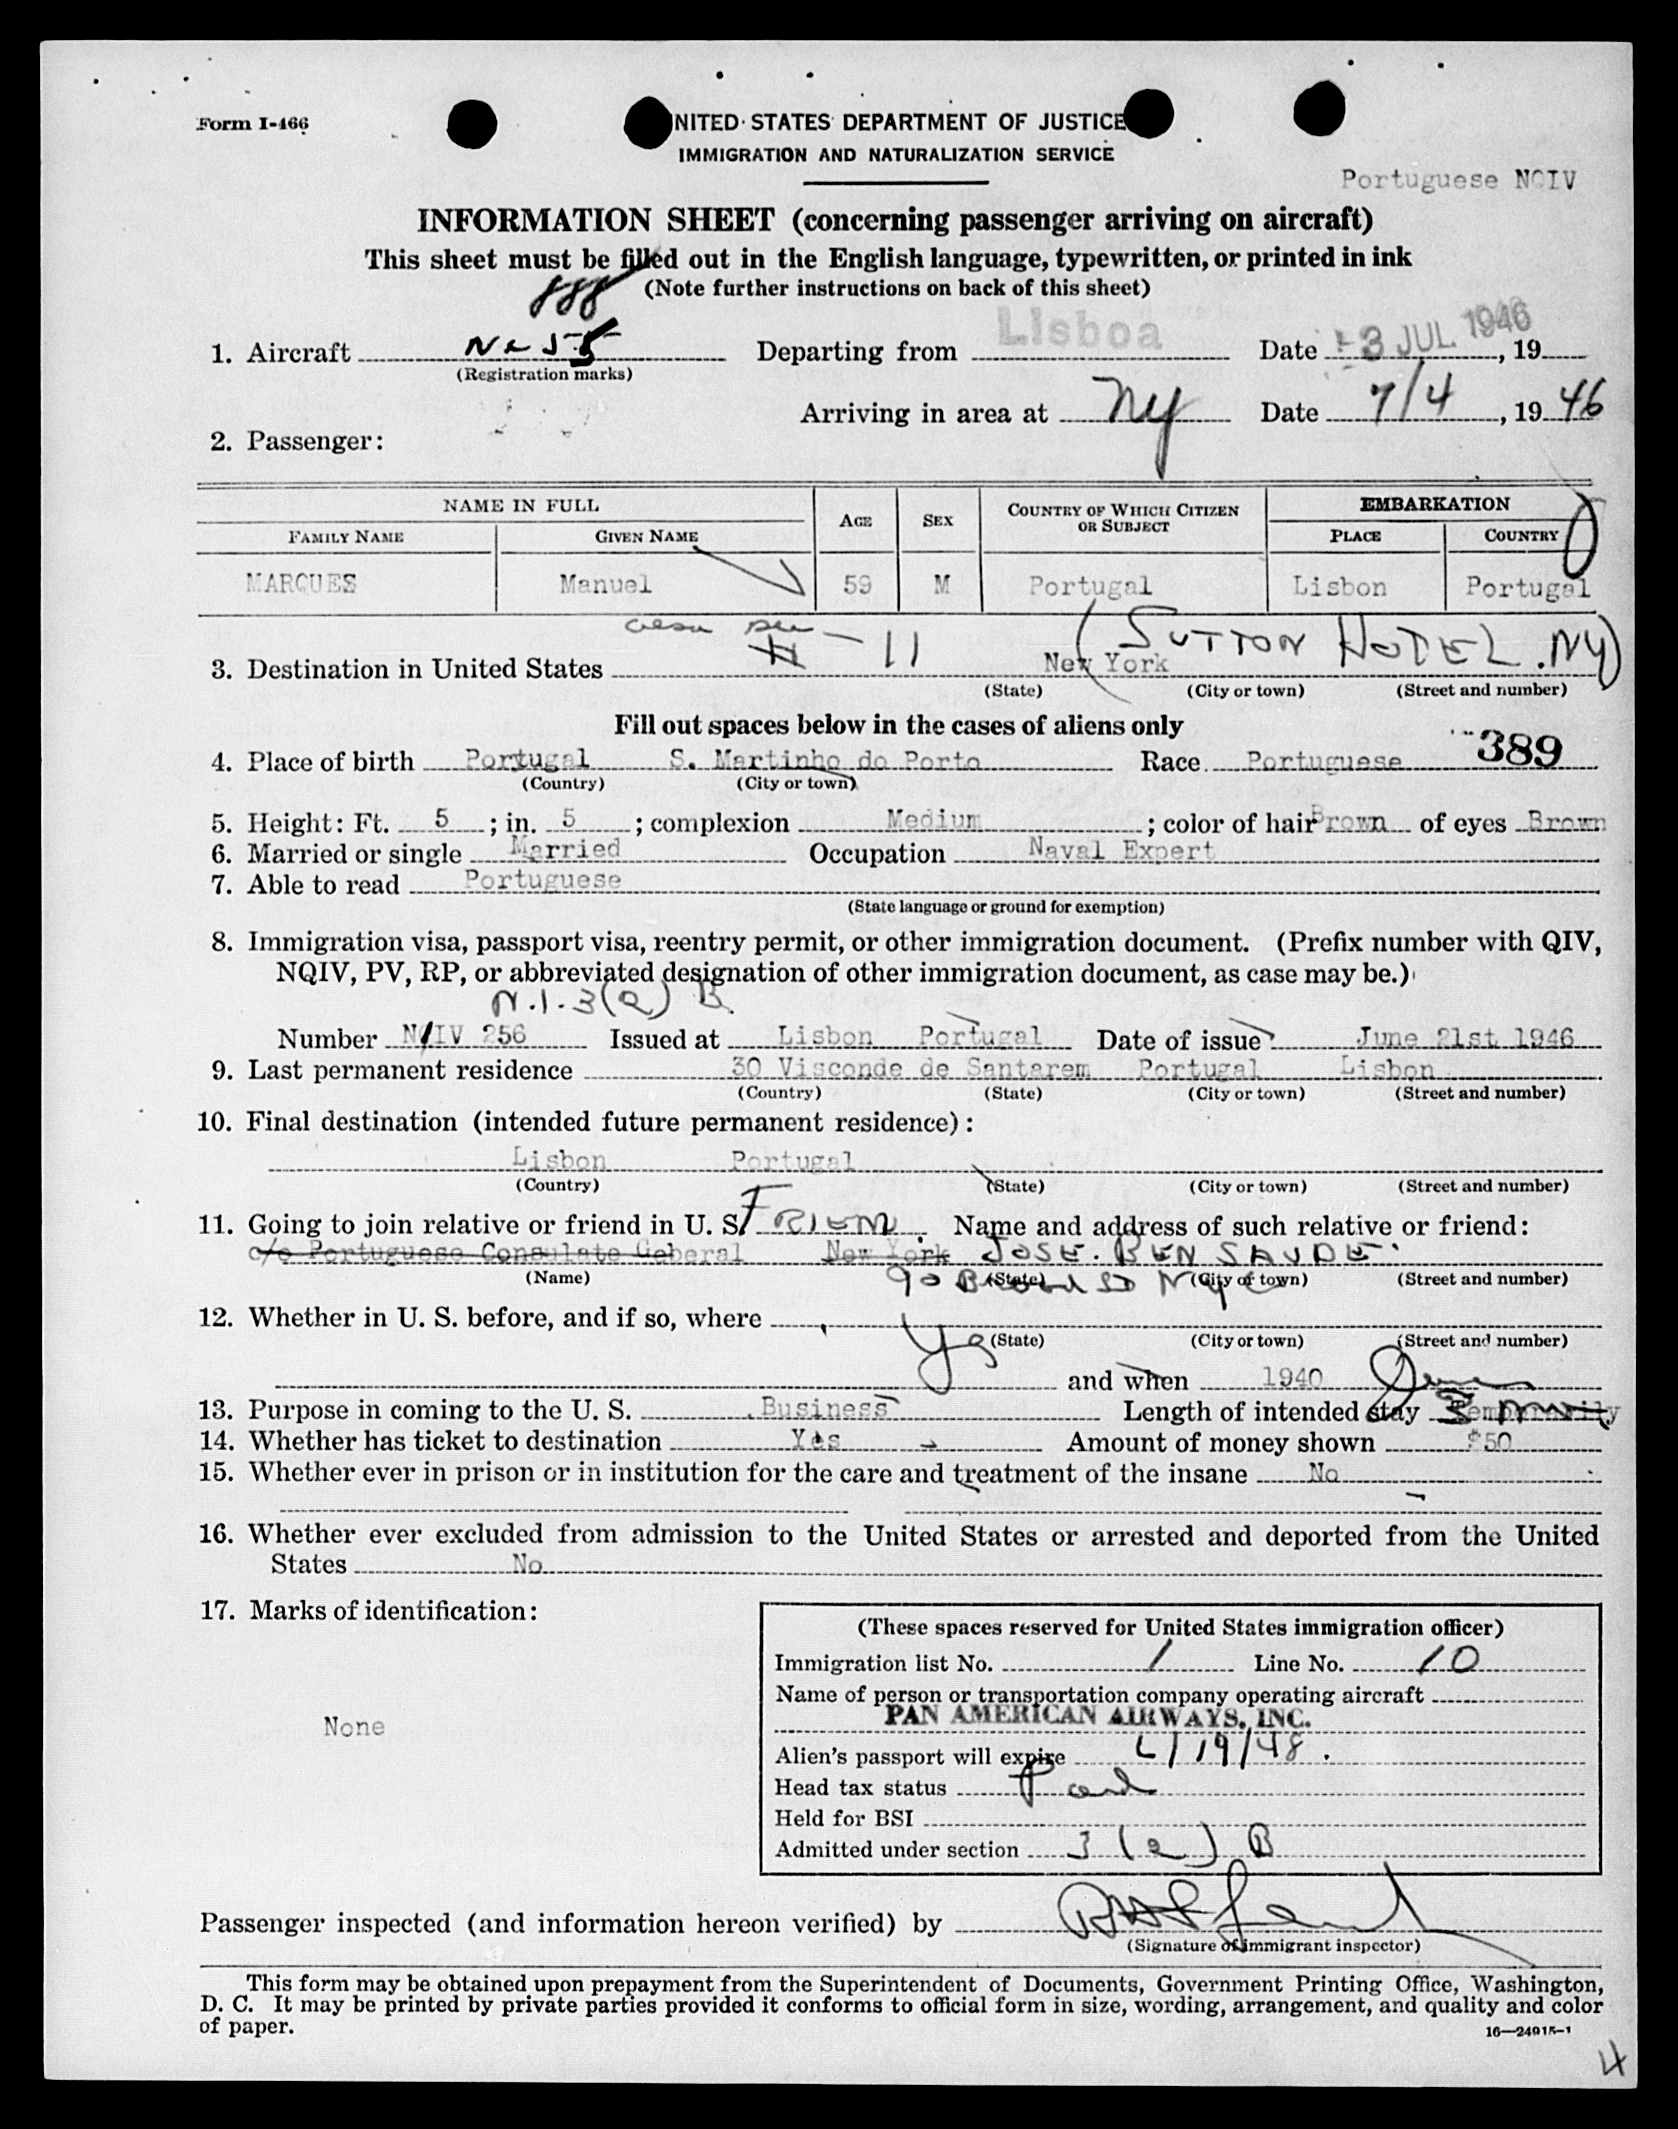 Form I-466
UNITED STATES DEPARTMENT OF JUSTICE
IMMIGRATION AND NATURALIZATION SERVICE
Portuguese NQIV
INFORMATION SHEET (concerning passenger arriving on aircraft)
This sheet must be filled out in the English language, typewritten, or printed in ink
(Note further instructions on back of this sheet)
888
1. Aircraft Departing from Lisboa Date -3 JUL. 1946, 19
(Registration marks)
Arriving in area at NY Date 7/4, 19 46
2. Passenger:
NAME IN FULL AGE SEX COUNTRY OF WHICH CITIZEN OR SUBJECT EMBARKATION
FAMILY NAME GIVEN NAME PLACE COUNTRY
MARQUES Manuel 59 M Portugal Lisbon Portugal
(SUTTON HOTEL. NY)
3. Destination in United States 11 New York
(State) (City or town) (Street and number)
Fill out spaces below in the cases of aliens only
389
4. Place of birth Portugal S. Martinho do Porto Race Portuguese
(Country) (City or town)
5. Height: Ft. 5; in. 5; complexion Medium; color of hair Brown of eyes Brown
6. Married or single Married Occupation Naval Expert
7. Able to read Portuguese
(State language or ground for exemption)
8. Immigration visa, passport visa, reentry permit, or other immigration document. (Prefix number with QIV,
NQIV, PV, RP, or abbreviated designation of other immigration document, as case may be.)
N.I.-3(2) B
Number NQIV 256 Issued at Lisbon Portugal Date of issue June 21st 1946
9. Last permanent residence 30 Visconde de Santarem Portugal Lisbon
(Country) (State) (City or town) (Street and number)
10. Final destination (intended future permanent residence):
Lisbon Portugal
(Country) (State) (City or town) (Street and number)
11. Going to join relative or friend in U. S. FRIEND. Name and address of such relative or friend:
c/o Portuguese Consulate Geberal New York JOSE. BENSAUDE.
(Name) (State) (City or town) (Street and number)
90 Broad St NYC
12. Whether in U. S. before, and if so, where Yes
(State) (City or town) (Street and number)
and when 1940
13. Purpose in coming to the U. S. Business Length of intended stay Temporarily
14. Whether has ticket to destination Yes Amount of money shown $50
15. Whether ever in prison or in institution for the care and treatment of the insane No
16. Whether ever excluded from admission to the United States or arrested and deported from the United
States No
17. Marks of identification:
None
(These spaces reserved for United States immigration officer)
Immigration list No. 1 Line No. 10
Name of person or transportation company operating aircraft
PAN AMERICAN AIRWAYS, INC.
Alien's passport will expire /19/48.
Head tax status Paid
Held for BSI
Admitted under section 3 (2) B
Passenger inspected (and information hereon verified) by
(Signature of immigrant inspector)
This form may be obtained upon prepayment from the Superintendent of Documents, Government Printing Office, Washington,
D. C. It may be printed by private parties provided it conforms to official form in size, wording, arrangement, and quality and color
of paper.
16—24915-1
4